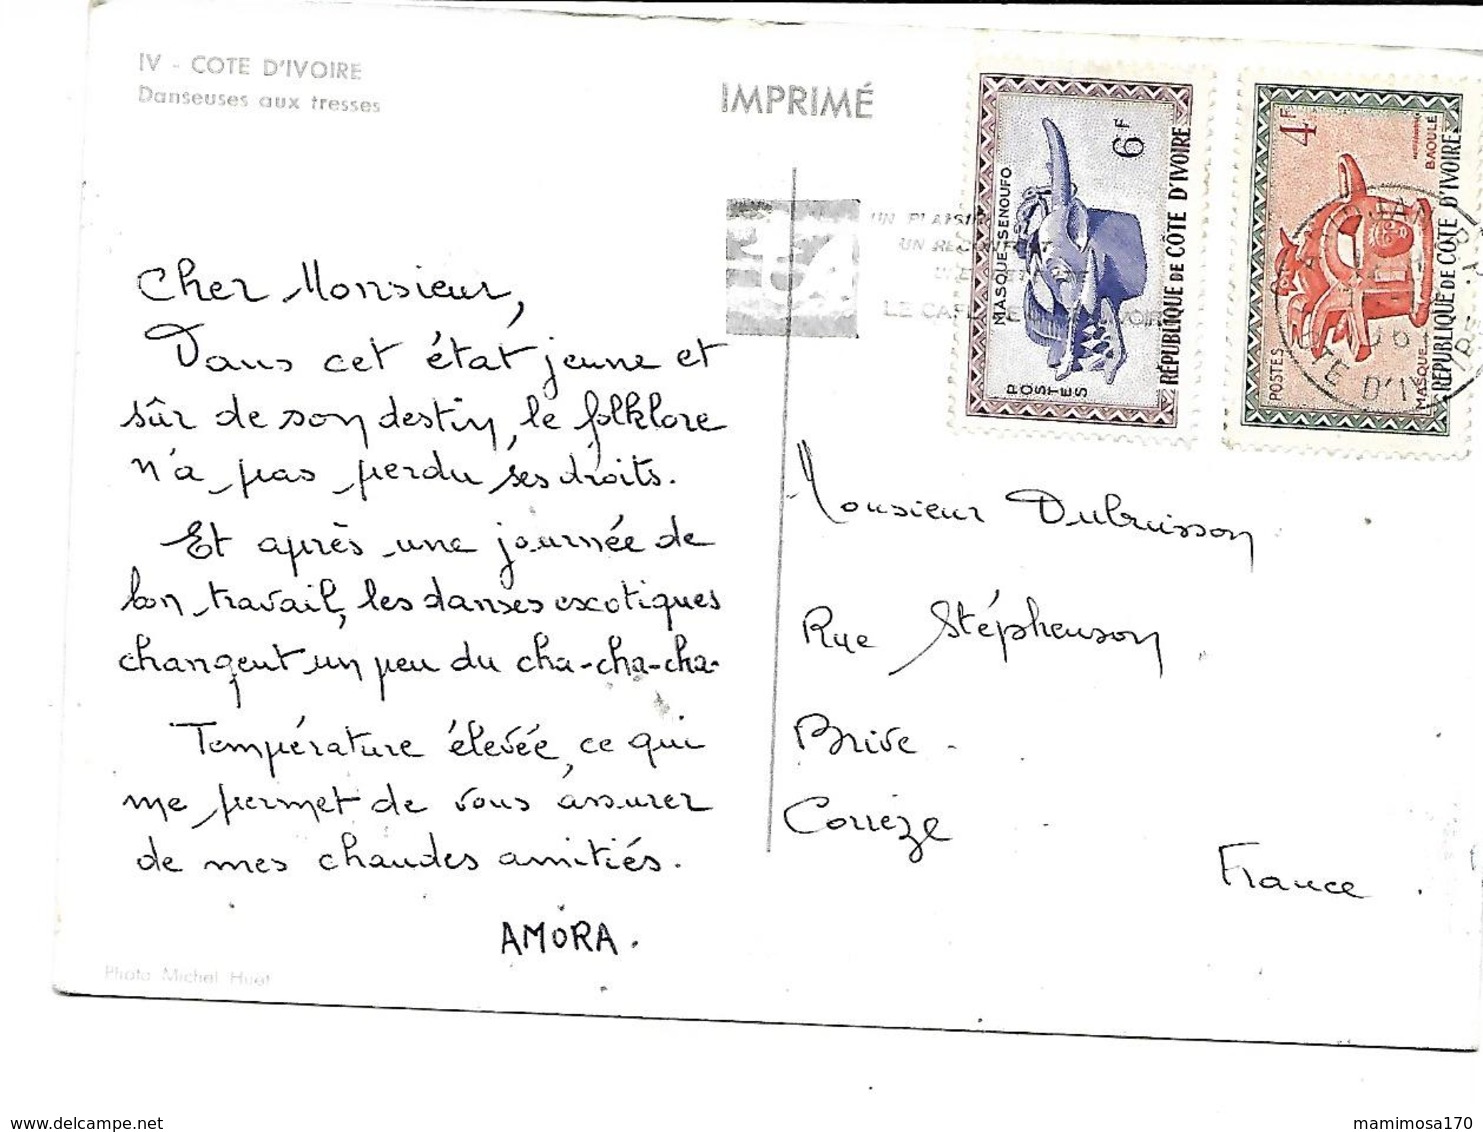 IV - COTE D'IVOIRE
Danseuses aux tresses
IMPRIMÉ
UN PLAISIR
UN RECONFORT
LE CAFE DE IVOIRE
MASQUE SENOUFO
6F
POSTES
RÉPUBLIQUE DE CÔTE D'IVOIRE
4F
BAOULÉ
POSTES
MASQUE
RÉPUBLIQUE DE CÔTE D'IVOIRE
ABIDJAN
CÔTE D'IVOIRE
Cher Monsieur,
Dans cet état jeune et
sûr de son destin, le folklore
n'a pas perdu ses droits.
Et après une journée de
bon travail, les danses exotiques
changent un peu du cha-cha-cha.
Température élevée, ce qui
me permet de vous assurer
de mes chaudes amitiés.
AMORA.
Photo Michel Huet
Monsieur Dubuisson
Rue Stéphenson
Brive
Corrèze
France
www.delcampe.net
mamimosa170